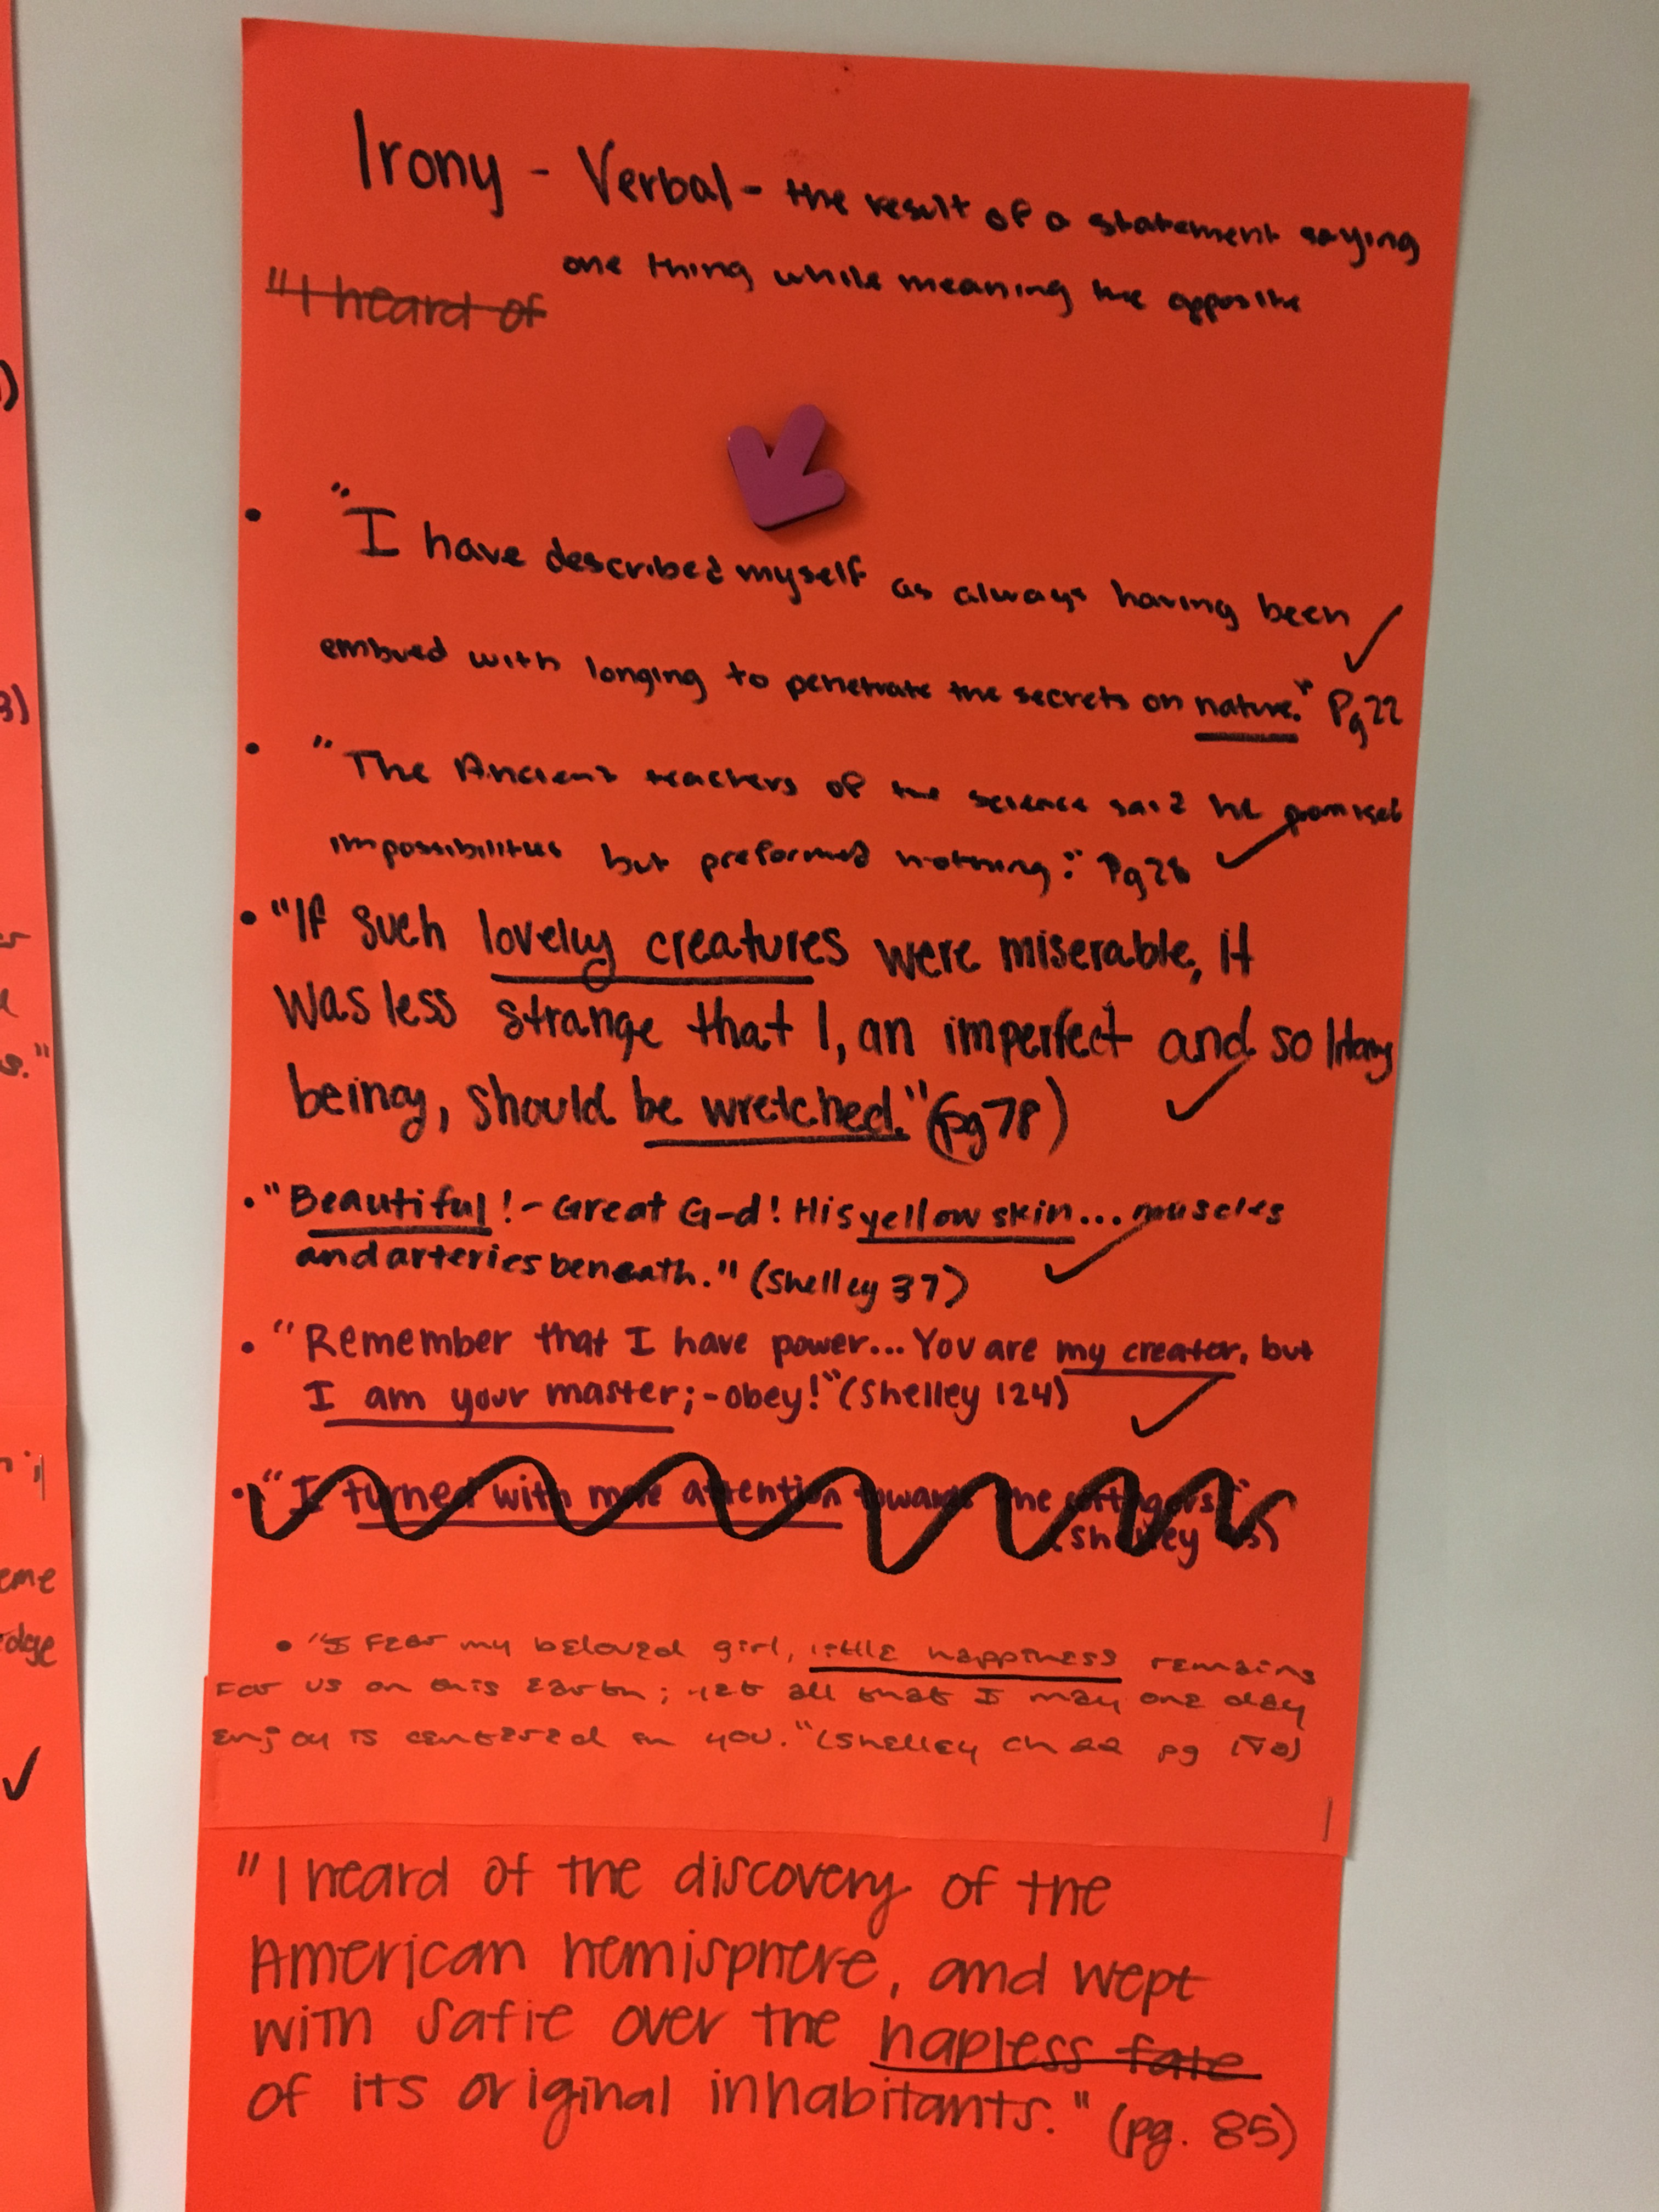 Irony - Verbal - the result of a statement saying
one thing while meaning the opposite
"I heard of
• "I have described myself as always having been
embued with longing to penetrate the secrets on nature." Pg 22
• "The Ancient teachers of the science said he promised
impossibilities but preformed nothing." Pg 28
• "If such lovely creatures were miserable, it
was less strange that I, an imperfect and so litary
being, should be wretched." (pg 78)
• "Beautiful! - Great G-d! His yellow skin... muscles
and arteries beneath." (Shelley 37)
• "Remember that I have power... You are my creator, but
I am your master; - obey!" (Shelley 124)
• "I turned with more attention towards the cottagers."
(Shelley
• "I Fear my beloved girl, little happiness remains
For us on this Earth; yet all that I may one day
enjoy is centered in you." (Shelley Ch 22 pg
"I heard of the discovery of the
American hemisphere, and wept
with Safie over the hapless fate
of its original inhabitants." (pg. 85)
3)
s."
eme
edge